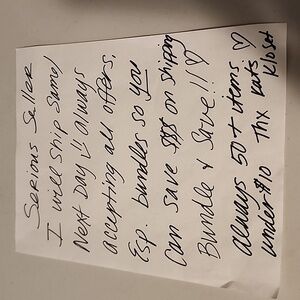 Serious Seller
I will ship same/
Next Day!! Always
accepting all offers,
Esp. bundles so you
Can save $$ on shipping
Bundle & Save!! ♡
Always 50+ items ♡
under $10 Thx Kats
Kloset